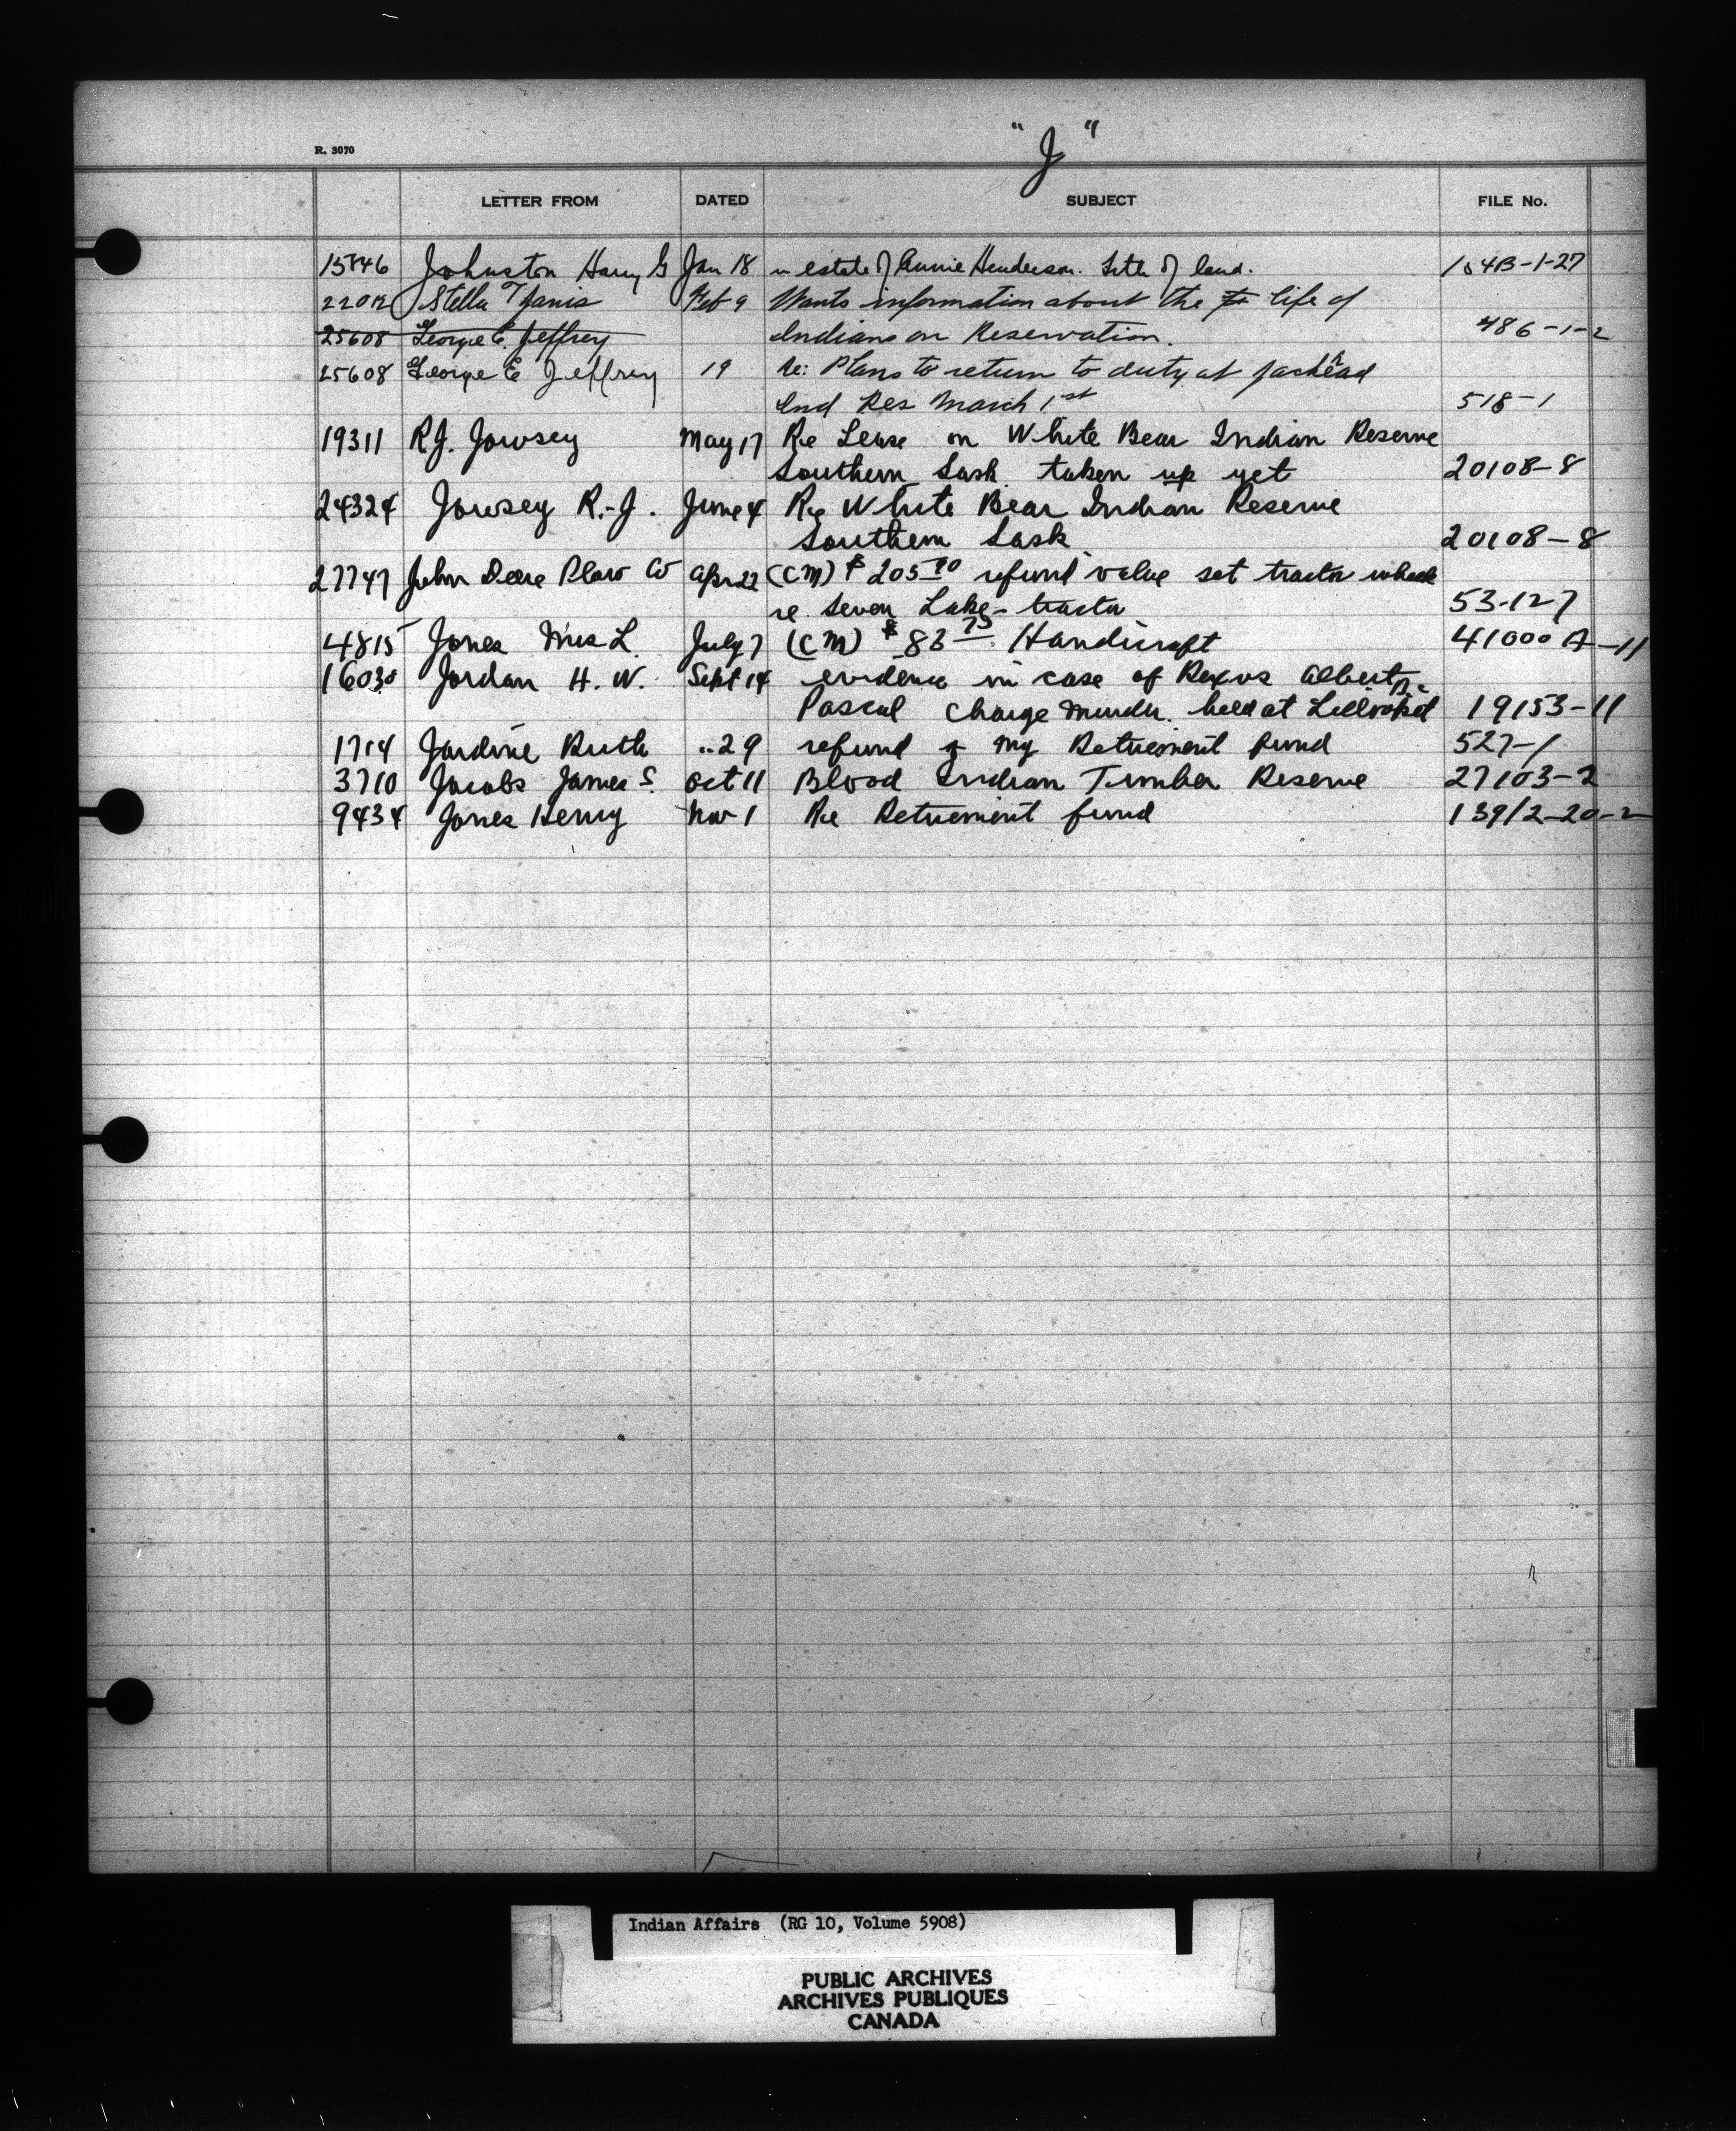 R. 3070
"J"
LETTER FROM DATED SUBJECT FILE No.
15846 Johnston Harry G Jan 18 estate of Annie Henderson. Title of land. 154B-1-27
22012 Stella Janis Feb 9 Wants information about the life of
25608 George E. Jeffrey Indians on Reservation. 486-1-2
25608 George E Jeffrey 19 Re: Plans to return to duty at
Ind Res March 1st 518-1
19311 R.J. Jowsey May 17 Re Lease on White Bear Indian Reserve
Southern Sask. taken up yet 20108-8
24324 Jowsey R.-J. June 4 Re White Bear Indian Reserve
Southern Sask 20108-8
27747 John Deere Plow Co Apr 22 (CM) $205 refund value set tractor wheels
re Seven Lake - tractor 53-12-7
4815 Jones Mrs L. July 7 (CM) $83 75 Handicraft 41000 A-11
16030 Jordan H. W. Sept 14 evidence in case of Rex vs Albert
Pascal charge murder. held at Lillooet 19153-11
1714 Jardine Ruth .. 29 refund of my Retirement fund 527-1
3710 Jacobs James S. Oct 11 Blood Indian Timber Reserve 27103-2
9434 Jones Henry Nov 1 Re Retirement fund 139/2-20-2
Indian Affairs (RG 10, Volume 5908)
PUBLIC ARCHIVES
ARCHIVES PUBLIQUES
CANADA